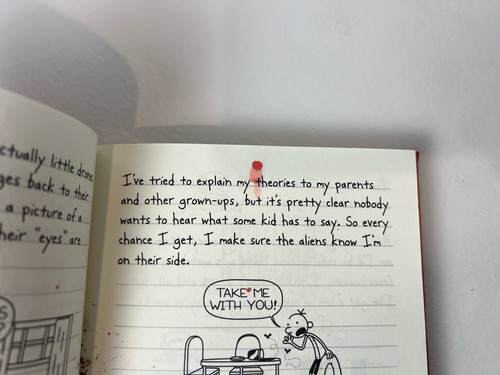 ctually little
ges back to their
a picture of a
heir "eyes" are
I've tried to explain my theories to my parents
and other grown-ups, but it's pretty clear nobody
wants to hear what some kid has to say. So every
chance I get, I make sure the aliens know I'm
on their side.
TAKE ME
WITH YOU!